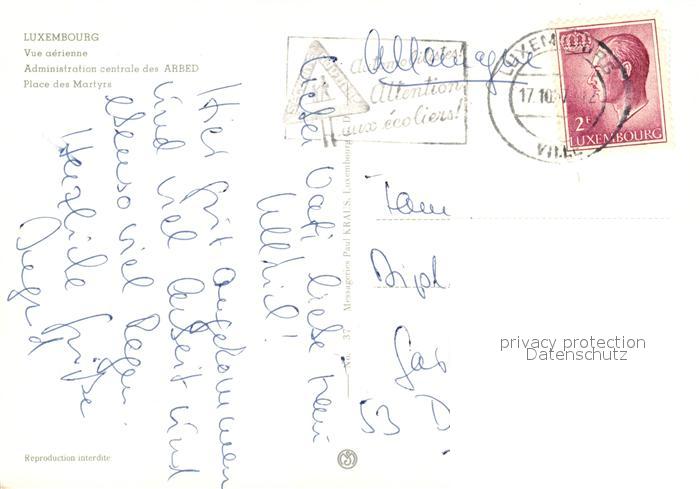 LUXEMBOURG
Vue aérienne
Administration centrale des ARBED
Place des Martyrs
Lieber Vati, liebe
Hier gut angekommen
und viel Arbeit und
ebenso viel Regen.
Herzliche Grüße
Reproduction interdite
No. 37 Messageries Paul KRAUS, Luxembourg
Allemagne
Automobilistes!
Attention
aux écoliers!
LUXEMBOURG
17.10
VILLE
2F
LUXEMBOURG
Fam
Diph
53
privacy protection
Datenschutz